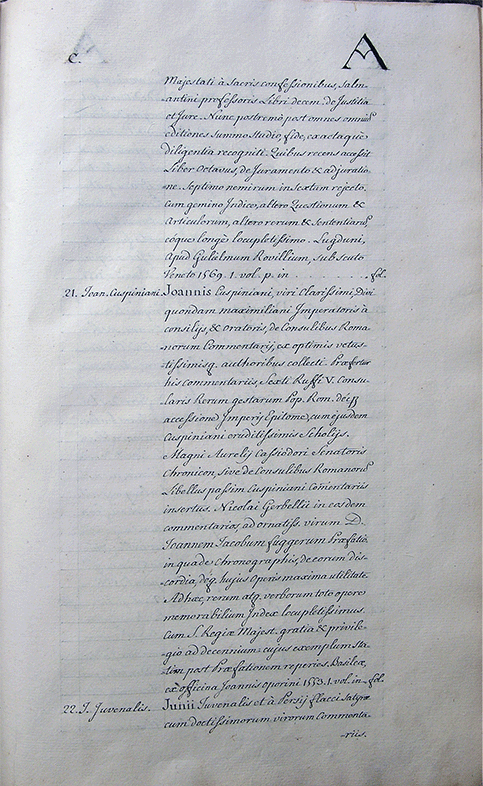 C. A
Majestati à Sacris confessionibus, Salm-
antini professoris Libri decem. de Justitia
et Jure. Nunc postremò post omnes omniũ
editiones summo studio, fide, exactaque
diligentia recogniti. Quibus recens accessit
Liber Octavus, de Juramento & adjuratio
ne. Septimo nemirum in Sextum rejecto.
cum gemino Indice, altero Questionum &
Articulorum, altero rerum & Sententiarũ,
eóque longè locupletissimo. Lugduni,
Apud Gulielmum Rovillium, sub scuto
Veneto 1569. 1. vol. p. in . . . . . . . fol.
21. Joan. Cuspiniani. Joannis Cuspiniani, viri Clarissimi, Divi
quondam maximiliani Imperatoris à
consilijs, & Oratoris, de Consulibus Roma-
norum Commentarij, ex optimis vetus-
tissimisq. authoribus collecti. Præfertur
his commentariis, Sexti Ruffi V. Consu-
laris Rerum gestarum Pop. Rom.
accessione Imperij Epitome, cum ejusdem
Cuspiniani eruditissimis Scholijs.
Magni Aurelij Cassiodori Senatoris
Chronicon, sive de Consulibus Romanorũ
Libellus passim Cuspiniani Com̃entariis
insertus. Nicolai Gerbellii in eosdem
commentarios ad ornatiss. virum D.
Joannem Jacobum fuggerum Præfatio.
in qua de Chronographis, de eorum dis-
cordia, deq. hujus Operis maxima utilitate
Ad hæc, rerum atq. verborum toto opere
memorabilium Index locupletissimus.
Cum S. Regiæ Majest. gratia & privile-
gio ad decennium: cujus exemplum sta-
tim post Præfationem reperies. Basileæ,
ex officina Joannis oporini 1553. 1. vol. in fol.
22. J. Juvenalis. Junii Juvenalis et à Persij flacci Satyræ
cum doctissimorum virorum Commenta-
riis.